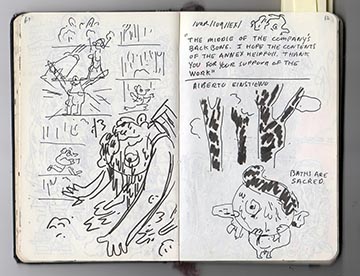 "THE MIDDLE OF THE COMPANY'S
BACK BONE. I HOPE THE CONTENTS
OF THE ANNEX HELP YOU. THANK
YOU FOR YOUR SUPPORT OF THE
WORK"
ALBERTO
BATHS ARE
SACRED